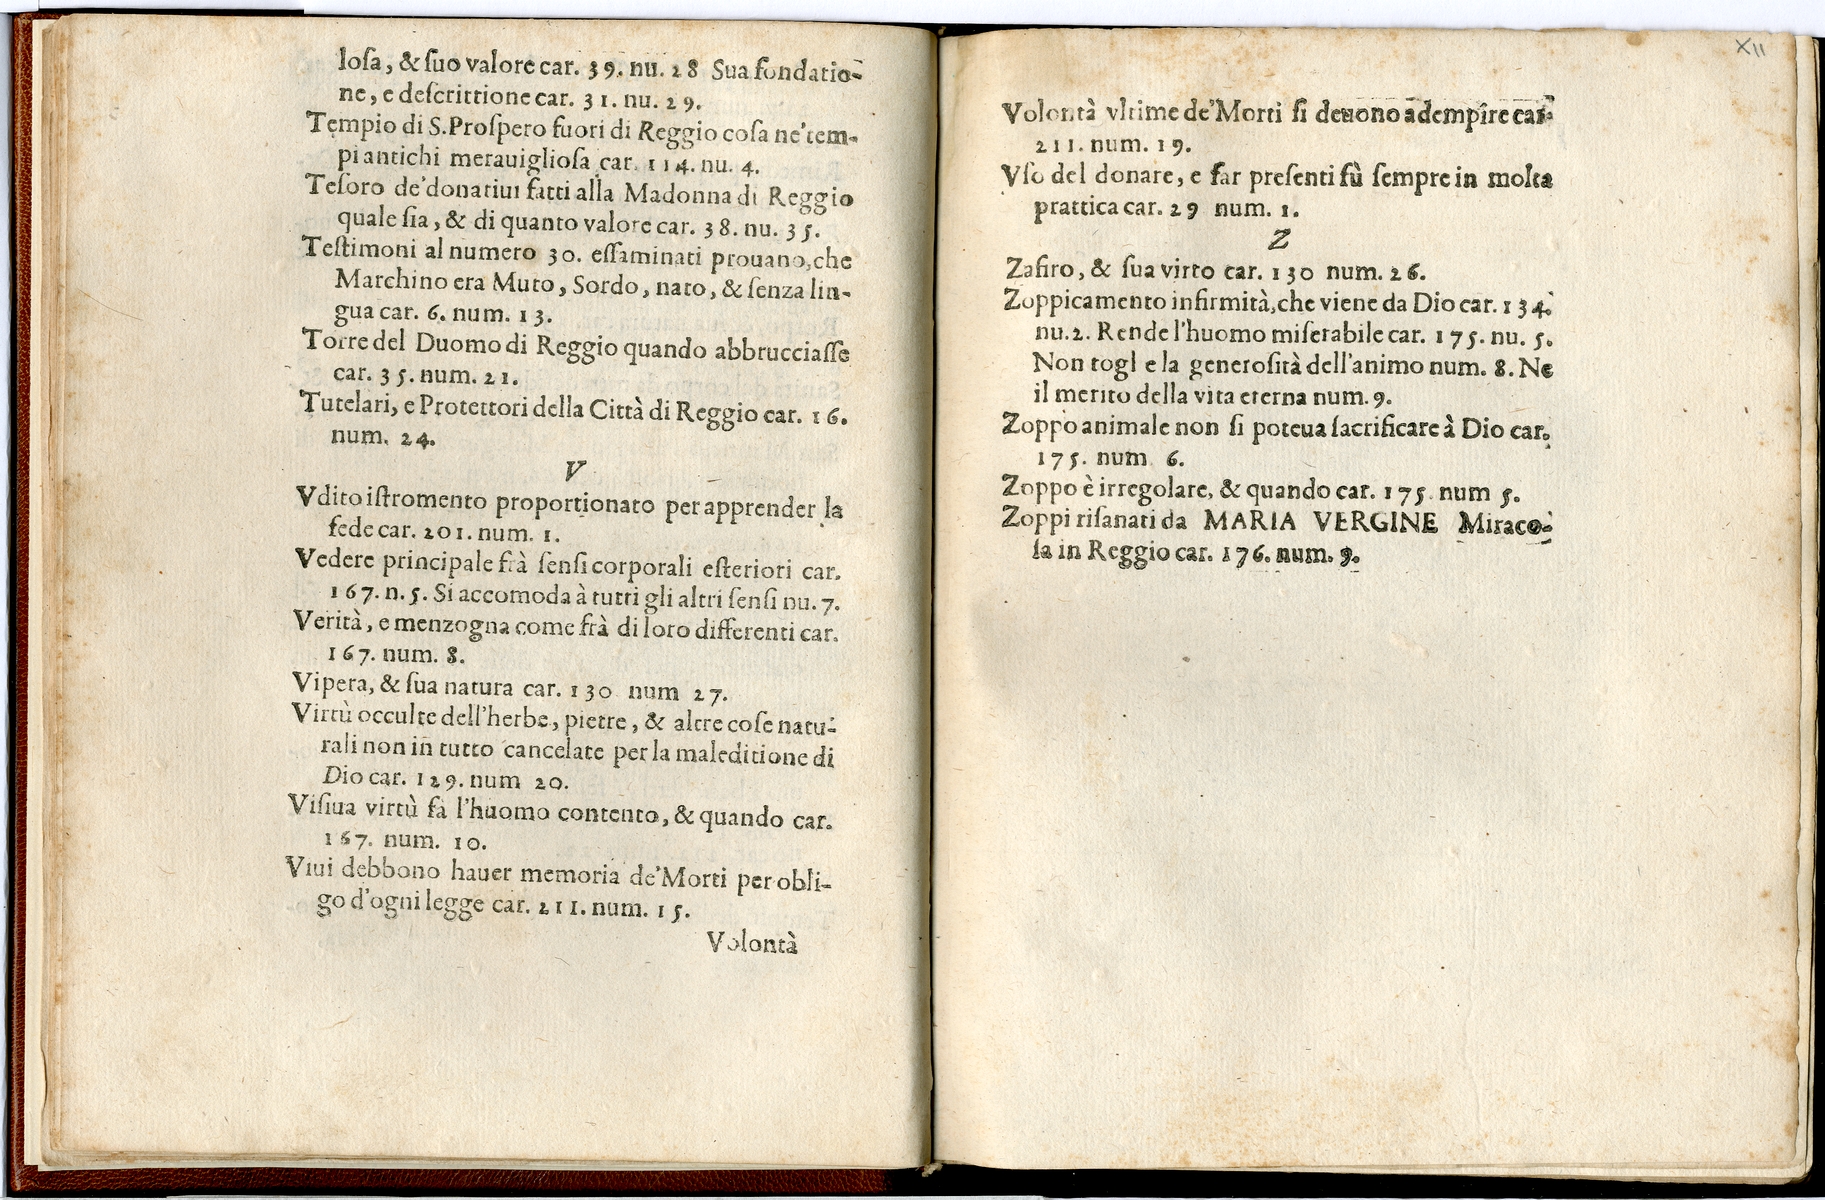 loſa, & ſuo valore car. 39. nu. 28 Sua fondatio-
ne, e deſcrittione car. 31. nu. 29.
Tempio di S. Proſpero fuori di Reggio coſa ne'tem-
pi antichi merauiglioſa car. 114. nu. 4.
Teſoro de'donatiui fatti alla Madonna di Reggio
quale ſia, & di quanto valore car. 38. nu. 35.
Teſtimoni al numero 30. eſſaminati prouano, che
Marchino era Muto, Sordo, nato, & ſenza lin-
gua car. 6. num. 13.
Torre del Duomo di Reggio quando abbrucciaſſe
car. 35. num. 21.
Tutelari, e Protettori della Città di Reggio car. 16.
num. 24.
V
Vdito iſtromento proportionato per apprender la
fede car. 201. num. 1.
Vedere principale frà ſenſi corporali eſteriori car.
167. n. 5. Si accomoda à tutti gli altri ſenſi nu. 7.
Verità, e menzogna come frà di loro differenti car.
167. num. 8.
Vipera, & ſua natura car. 130 num 27.
Virtù occulte dell'herbe, pietre, & altre coſe natu-
rali non in tutto cancelate per la maleditione di
Dio car. 129. num 20.
Viſiua virtù fà l'huomo contento, & quando car.
167. num. 10.
Viui debbono hauer memoria de'Morti per obli-
go d'ogni legge car. 211. num. 15.
Volontà
XII
Volontà vltime de'Morti ſi deuono adempire car.
211. num. 19.
Vſo del donare, e far preſenti fù ſempre in molta
prattica car. 29 num. 1.
Z
Zafiro, & ſua virto car. 130 num. 26.
Zoppicamento infirmità, che viene da Dio car. 134.
nu. 2. Rende l'huomo miſerabile car. 175. nu. 5.
Non togl e la generoſità dell'animo num. 8. Ne
il merito della vita eterna num. 9.
Zoppo animale non ſi poteua ſacrificare à Dio car.
175. num 6.
Zoppo è irregolare, & quando car. 175 num 5.
Zoppi riſanati da MARIA VERGINE Miraco-
ſa in Reggio car. 176. num. 9.